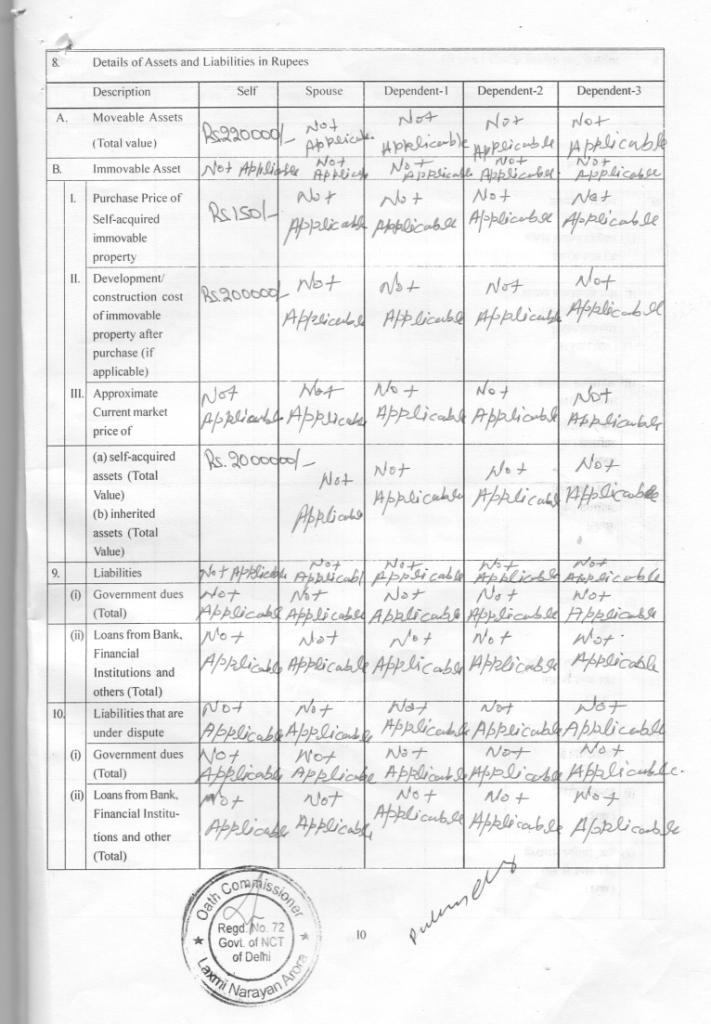 8. Details of Assets and Liabilities in Rupees
Description Self Spouse Dependent-1 Dependent-2 Dependent-3
A. Moveable Assets (Total value) Rs220000/- Not Applicable Not Applicable Not Applicable Not Applicable
B. Immovable Asset Not Applicable Not Applicable Not Applicable Not Applicable Not Applicable
I. Purchase Price of Self-acquired immovable property Rs.150/- Not Applicable Not Applicable Not Applicable Not Applicable
II. Development/ construction cost of immovable property after purchase (if applicable) Rs.200000/- Not Applicable Not Applicable Not Applicable Not Applicable
III. Approximate Current market price of Not Applicable Not Applicable Not Applicable Not Applicable Not Applicable
(a) self-acquired assets (Total Value) (b) inherited assets (Total Value) Rs. 2000000/- Not Applicable Not Applicable Not Applicable Not Applicable
9. Liabilities Not Applicable Not Applicable Not Applicable Not Applicable Not Applicable
(i) Government dues (Total) Not Applicable Not Applicable Not Applicable Not Applicable Not Applicable
(ii) Loans from Bank, Financial Institutions and others (Total) Not Applicable Not Applicable Not Applicable Not Applicable Not Applicable
10. Liabilities that are under dispute Not Applicable Not Applicable Not Applicable Not Applicable Not Applicable
(i) Government dues (Total) Not Applicable Not Applicable Not Applicable Not Applicable Not Applicable.
(ii) Loans from Bank, Financial Institu- tions and other (Total) Not Applicable Not Applicable Not Applicable Not Applicable Not Applicable
Oath Commissioner
Regd. No. 72
Govt. of NCT
of Delhi
Laxmi Narayan Arora
10